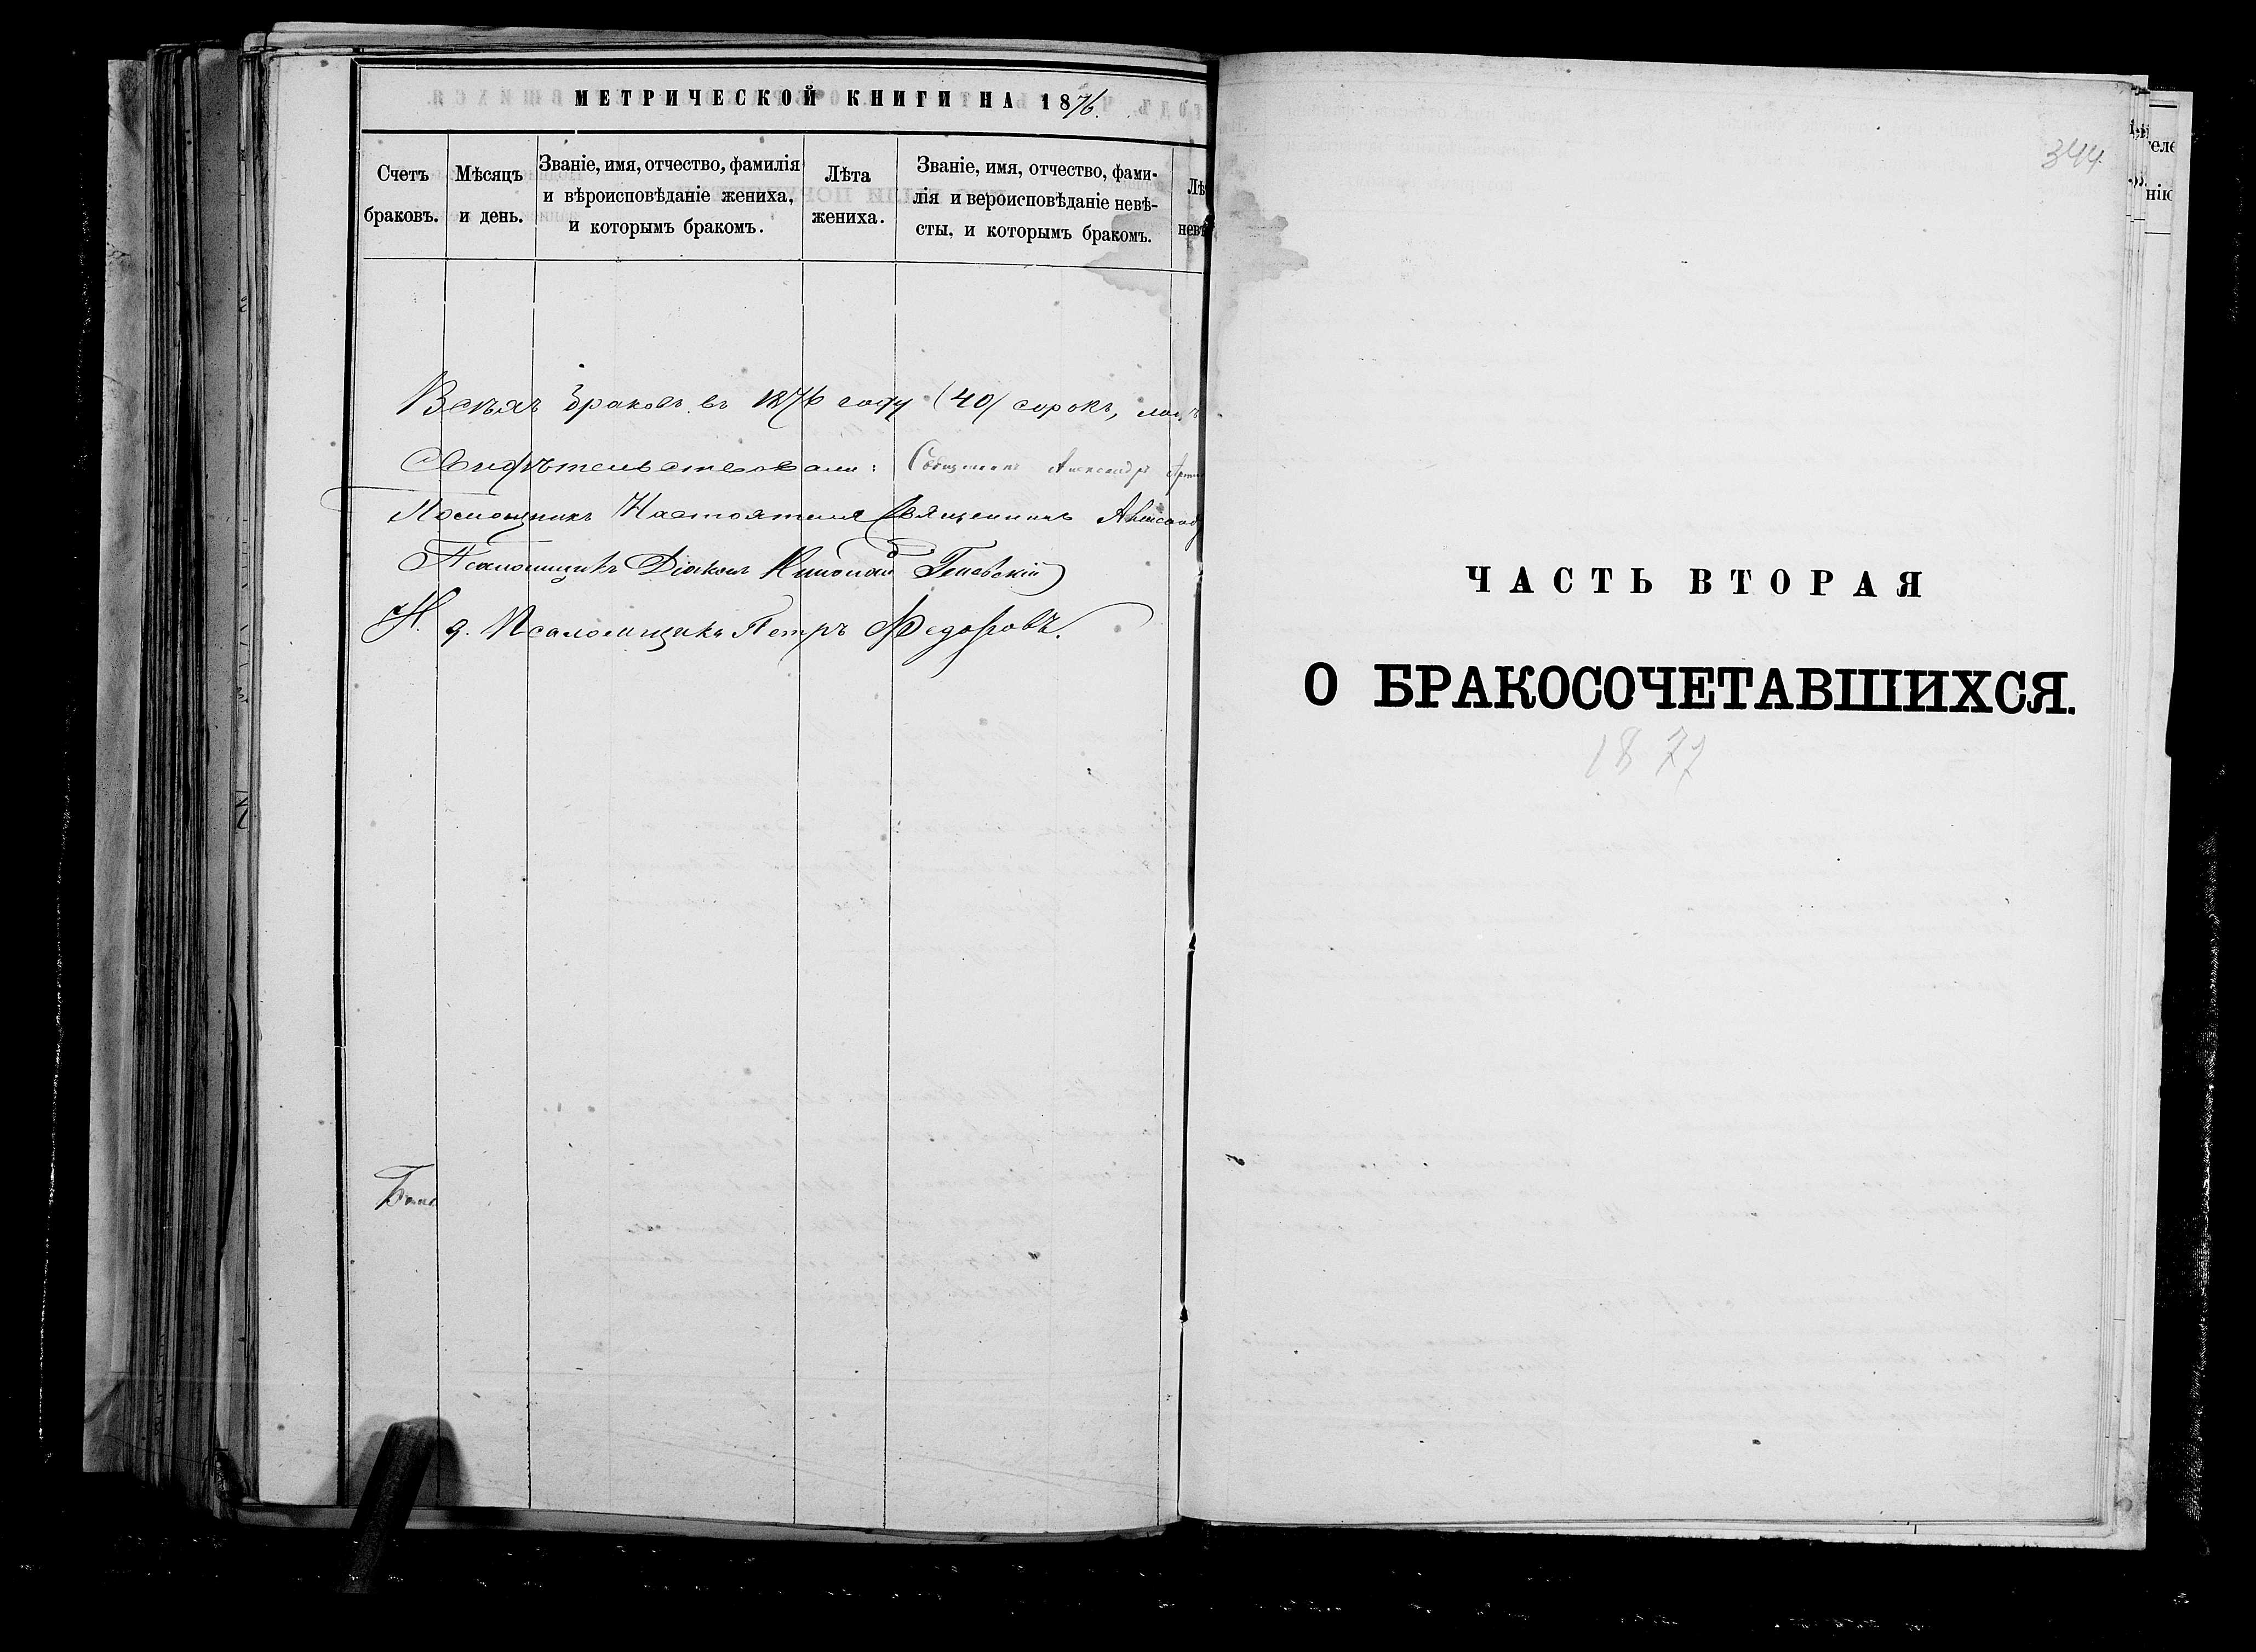 МЕТРИЧЕСКОЙ КНИГИ НА 1876.
Счетъ браковъ.
Мѣсяцъ и день.
Званіе, имя, отчество, фамилія
и вѣроисповѣданіе жениха,
и которымъ бракомъ.
Лѣта
жениха.
Званіе, имя, отчество, фами-
лія и вероисповѣданіе невѣ-
сты, и которымъ бракомъ.
Лѣ
невѣ
Всѣхъ браковъ въ 1876 году (40) сорокъ,
Свидѣтельствовали: Священникъ Александръ
Помощникъ Настоятеля Священникъ
Псаломщикъ Діаконъ Николай
И. д. Псаломщика Петръ Федоровъ.
344
ЧАСТЬ ВТОРАЯ
О БРАКОСОЧЕТАВШИХСЯ.
1877